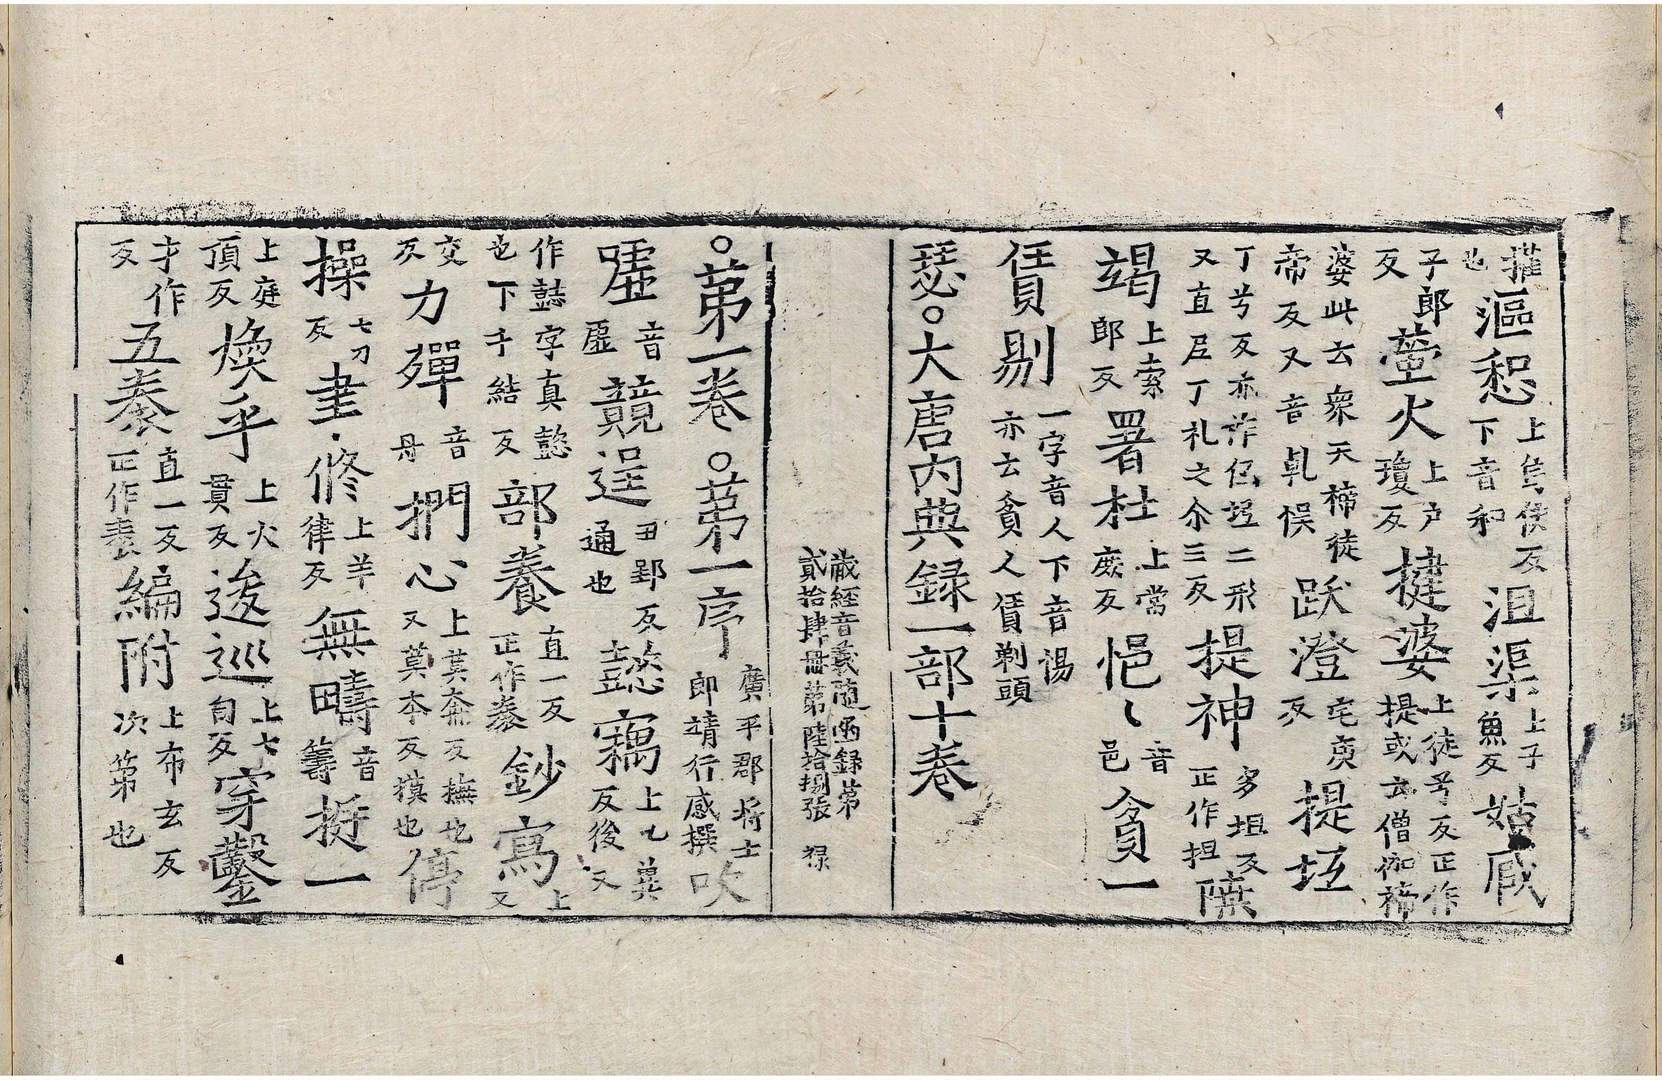 摧也漚惒上烏侯反下音和沮渠上子魚反姑戚
子郎反螢火上户瓊反揵婆上徒兮反正作提或云僧伽褅
婆此云衆天褅徒帝反又音軋悮跃澄宅庾反提坻
丁兮反亦作低坘二形又直尼丁礼之尒三反提神多坦反正作担隵
竭上索郎反署杜上常庶反悒〻音邑貪一
賃剔一字音人下音惕亦云貪人賃剃頭
瑟○大唐内典録一部十卷
藏經音義隨函録第貳拾肆冊第陸拾捌張 禄
○第一卷○第一序廣平郡將士郎靖行感撰吹
嘘音虛競逞丑郢反通也懿竊上乙冀反後又
作懿字真懿也下千結反部袠直一反正作袠鈔寫上又
交反力殫音丹捫心上莫奔反撫也又莫本反㨢也停
操七刀反聿修上羊律反無疇音籌挺一
上庭頂反煥乎上火貫反逡巡上七旬反穿鑿
才作反五袠直一反正作袠編附上布玄反次第也